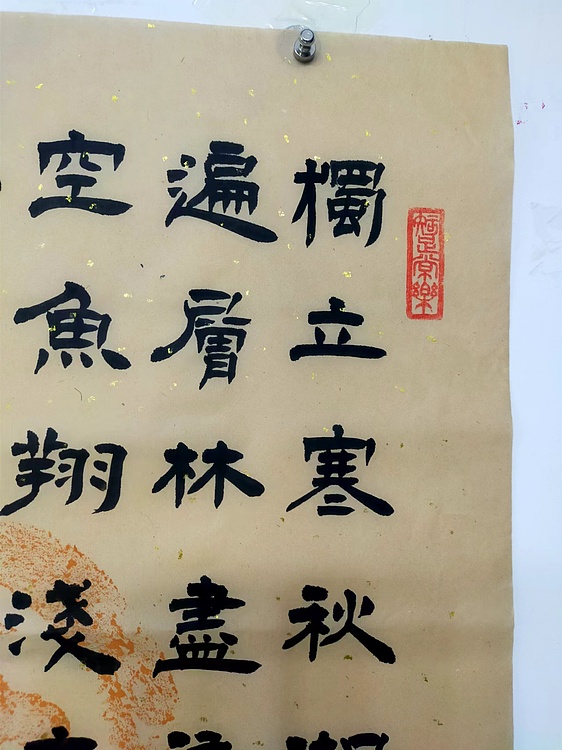 知足常樂
獨立寒秋
遍層林盡
空魚翔淺